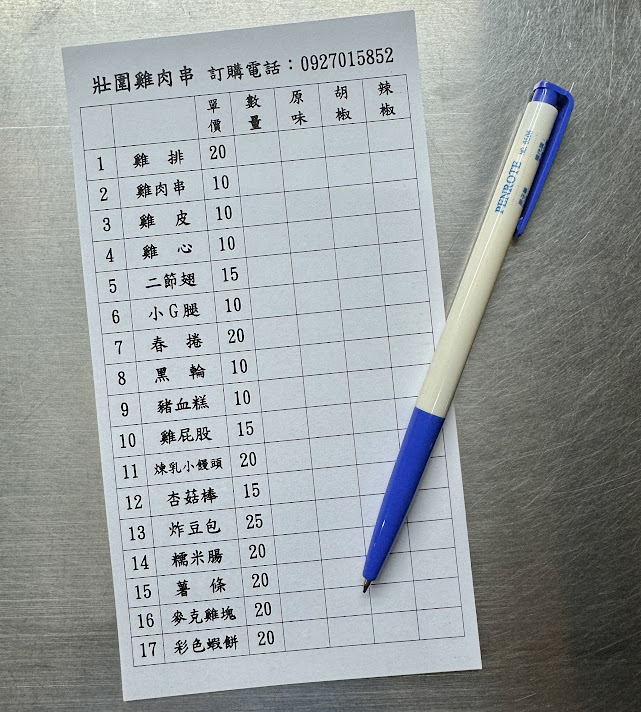 壯圍雞肉串 訂購電話：0927015852
單價 數量 原味 胡椒 辣椒
1 雞排 20
2 雞肉串 10
3 雞皮 10
4 雞心 10
5 二節翅 15
6 小G腿 10
7 春捲 20
8 黑輪 10
9 豬血糕 10
10 雞屁股 15
11 煉乳小饅頭 20
12 杏菇棒 15
13 炸豆包 25
14 糯米腸 20
15 薯條 20
16 麥克雞塊 20
17 彩色蝦餅 20
PENROTE